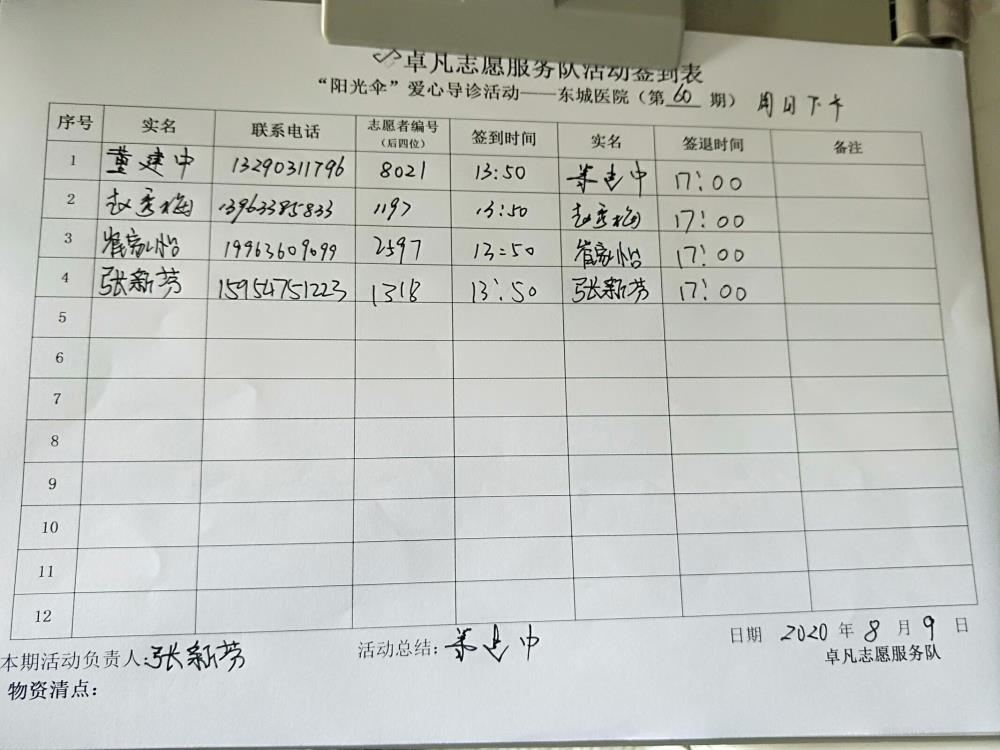 卓凡志愿服务队活动签到表
“阳光伞”爱心导诊活动——东城医院（第60期） 周日下午
序号 实名 联系电话 志愿者编号（后四位） 签到时间 实名 签退时间 备注
1 董建中 13290311796 8021 13:50 董建中 17:00
2 赵秀梅 13963385833 1197 13:50 赵秀梅 17:00
3 崔家怡 19963609099 2597 13:50 崔家怡 17:00
4 张新芳 15954751223 1318 13:50 张新芳 17:00
5
6
7
8
9
10
11
12
日期 2020年8月9日
本期活动负责人:张新芳 活动总结:董建中
卓凡志愿服务队
物资清点：